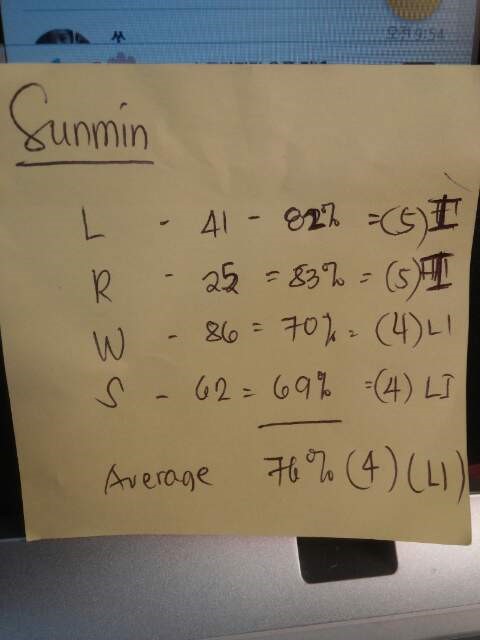 오전 9:54
Sunmin
L - 41 - 82% = (5) II
R - 25 = 83% = (5) II
W - 86 = 70% = (4) LI
S - 62 = 69% = (4) LI
Average 76% (4) (LI)